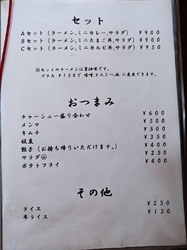 セット
Aセット(ラーメン,ミニカレー,サラダ) ¥900
Bセット(ラーメン,ミニたまご丼,サラダ) ¥900
Cセット(ラーメン,ミニカルビ丼,サラダ) ¥950
※セットのラーメンは醤油味です。
プラス¥150で味噌,とんこつ味に変更できます。
おつまみ
チャーシュー盛り合わせ ¥600
メンマ ¥500
キムチ ¥500
枝豆 ¥350
餃子(お持ち帰りいただけます。) ¥400
サラダ ¥250
ポテトフライ ¥400
その他
ライス ¥250
半ライス ¥150